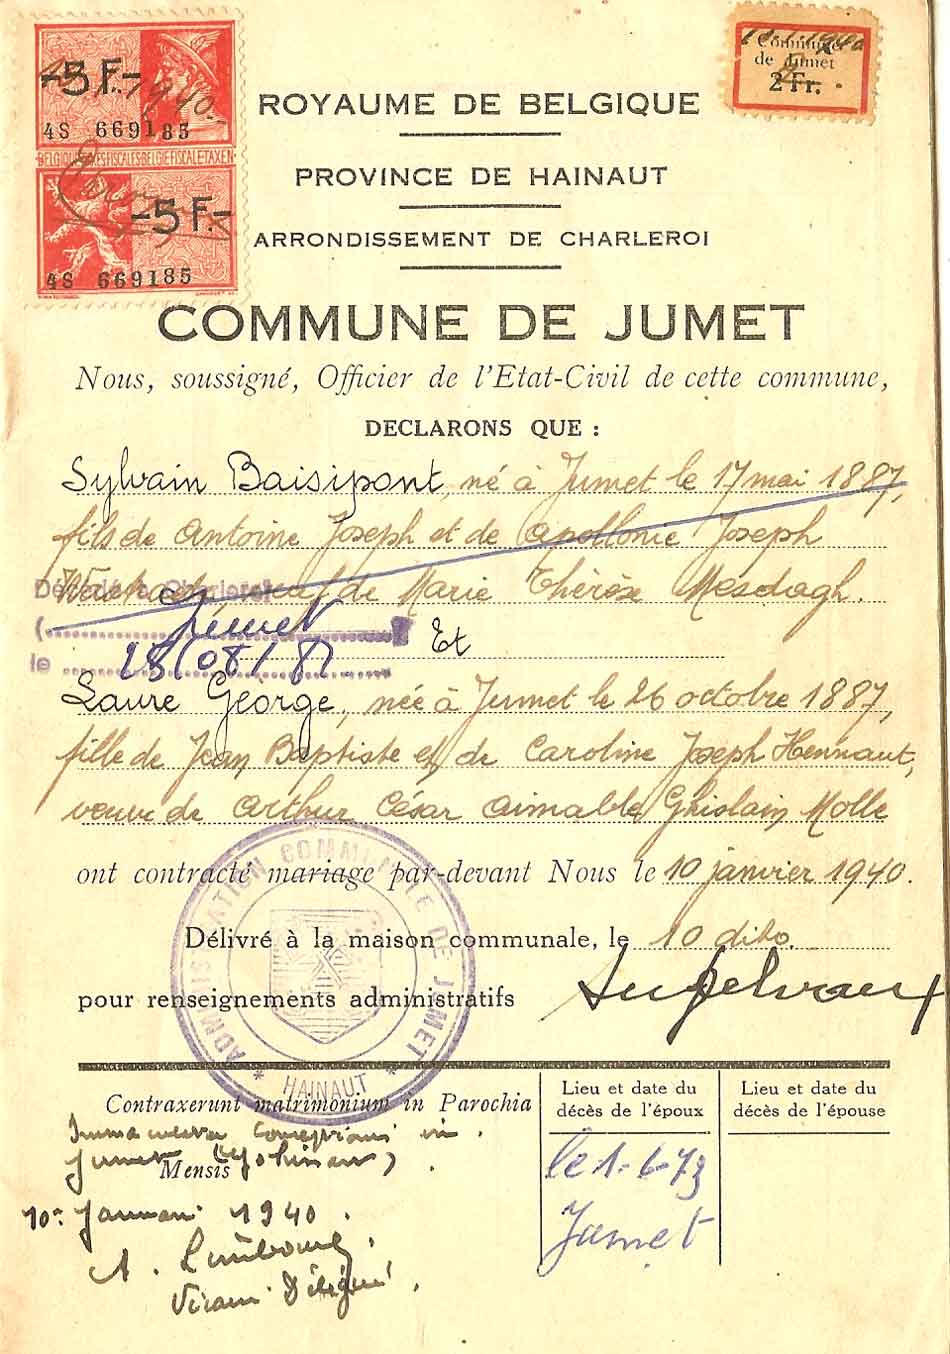 -5 F.-
1940.
4S 669185
BELGIQUE FISCALES BELGIE FISCALE TAXEN
-5 F.-
4S 669185
Commune
de Jumet
2 Fr.
ROYAUME DE BELGIQUE
PROVINCE DE HAINAUT
ARRONDISSEMENT DE CHARLEROI
COMMUNE DE JUMET
Nous, soussigné, Officier de l'Etat-Civil de cette commune,
DECLARONS QUE :
Sylvain Baisipont, né à Jumet le 17 mai 1887,
fils de Antoine Joseph et de Apollonie Joseph
veuf de Marie Thérèse Mesdagh.
Décédé à Charleroi
(Jumet)
Et
le 28/08/81
Laure George, née à Jumet le 26 octobre 1887,
fille de Jean Baptiste et de Caroline Joseph Hennaut,
veuve de Arthur César Aimable Ghislain Molle
ont contracté mariage par-devant Nous le 10 janvier 1940.
Délivré à la maison communale, le 10 dito.
pour renseignements administratifs
ADMINISTRATION COMMUNALE DE JUMET
* HAINAUT *
Contraxerunt matrimonium in Parochia
in
Jumet
Mensis
10a Januari 1940.
A.
Lieu et date du
décès de l'époux
le 1-6-73
Jumet
Lieu et date du
décès de l'épouse